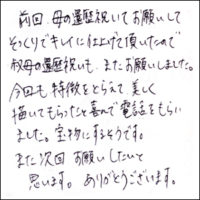 前回、母の還暦祝いでお願いして
そっくりでキレイに仕上げて頂いたので
叔母の還暦祝いも、またお願いしました。
今回も特徴をとらえて美しく
描いてもらったと喜んで電話をもらい
ました。宝物にするそうです。
また次回お願いしたいと
思います。ありがとうございます。